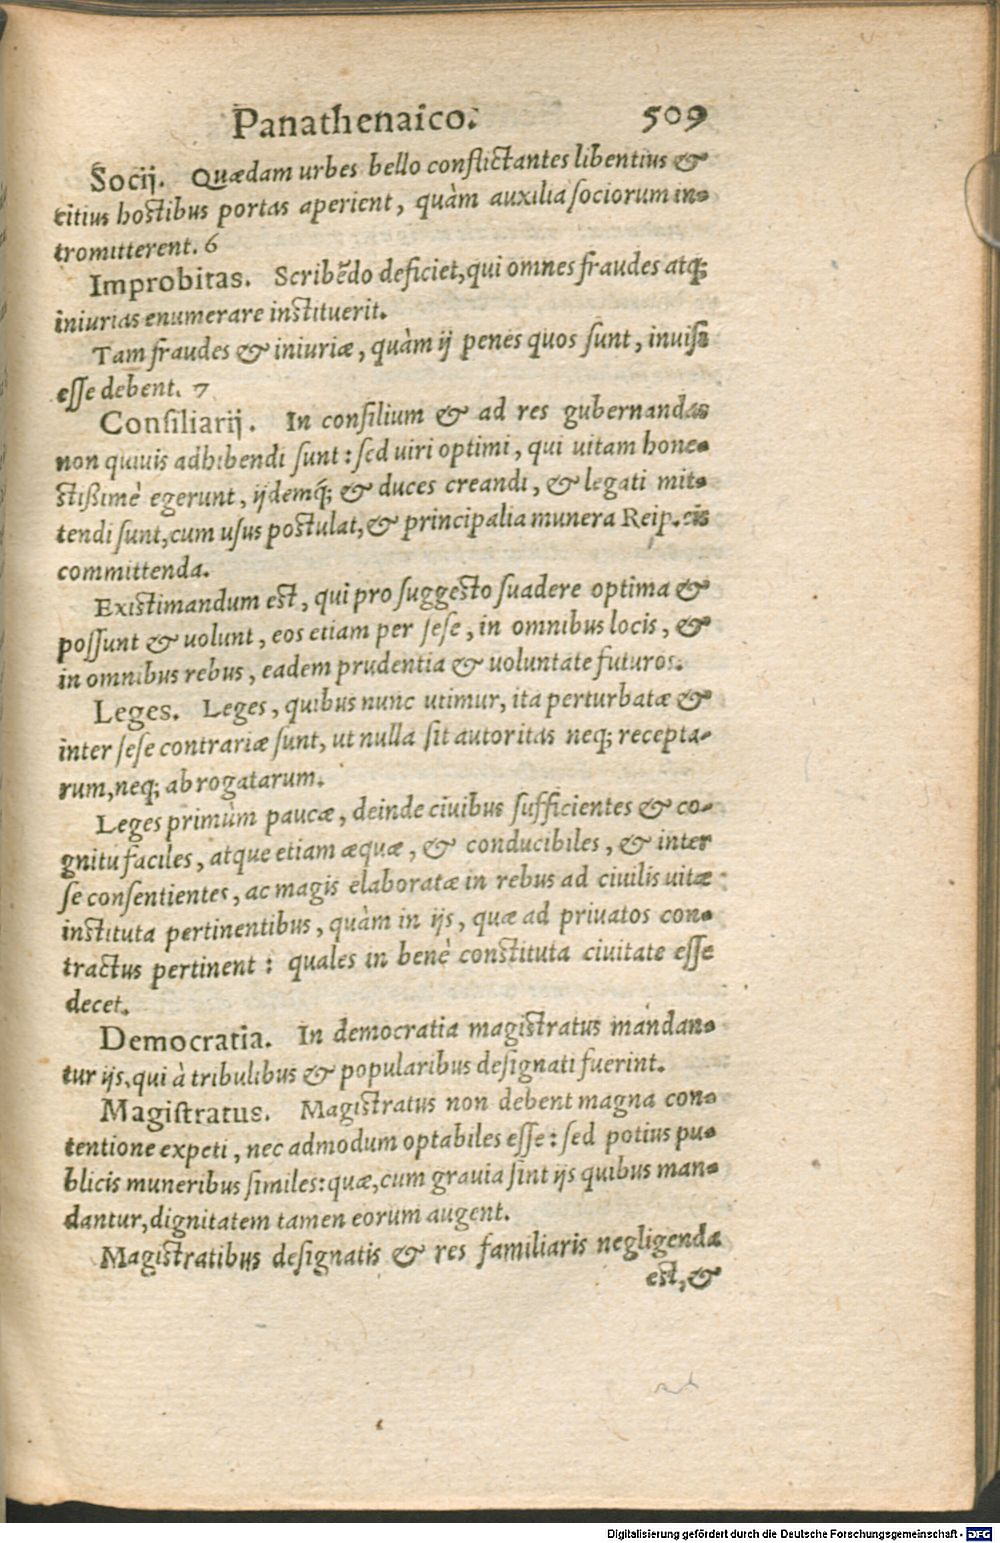 Panathenaico. 509
Socij. Quædam urbes bello conflictantes libentius &
citius hostibus portas aperient, quàm auxilia sociorum in-
tromitterent. 6
Improbitas. Scribēdo deficiet, qui omnes fraudes atq;
iniurias enumerare instituerit.
Tam fraudes & iniuriæ, quàm ij penes quos sunt, inuisæ
esse debent. 7
Consiliarij. In consilium & ad res gubernandas
non quiuis adhibendi sunt: sed uiri optimi, qui uitam hone-
stißimè egerunt, ijdemq́; & duces creandi, & legati mit-
tendi sunt, cum usus postulat, & principalia munera Reip. eis
committenda.
Existimandum est, qui pro suggesto suadere optima &
possunt & uolunt, eos etiam per sese, in omnibus locis, &
in omnibus rebus, eadem prudentia & uoluntate futuros.
Leges. Leges, quibus nunc utimur, ita perturbatæ &
inter sese contrariæ sunt, ut nulla sit autoritas neq; recepta-
rum, neq; abrogatarum.
Leges primùm paucæ, deinde ciuibus sufficientes & co-
gnitu faciles, atque etiam æquæ, & conducibiles, & inter
se consentientes, ac magis elaboratæ in rebus ad ciuilis uitæ
instituta pertinentibus, quàm in ijs, quæ ad priuatos con-
tractus pertinent: quales in benè constituta ciuitate esse
decet.
Democratia. In democratia magistratus mandan-
tur ijs, qui à tribulibus & popularibus designati fuerint.
Magistratus. Magistratus non debent magna con-
tentione expeti, nec admodum optabiles esse: sed potius pu-
blicis muneribus similes: quæ, cum grauia sint ijs quibus man-
dantur, dignitatem tamen eorum augent.
Magistratibus designatis & res familiaris negligenda
est, &
Digitalisierung gefördert durch die Deutsche Forschungsgemeinschaft - DFG